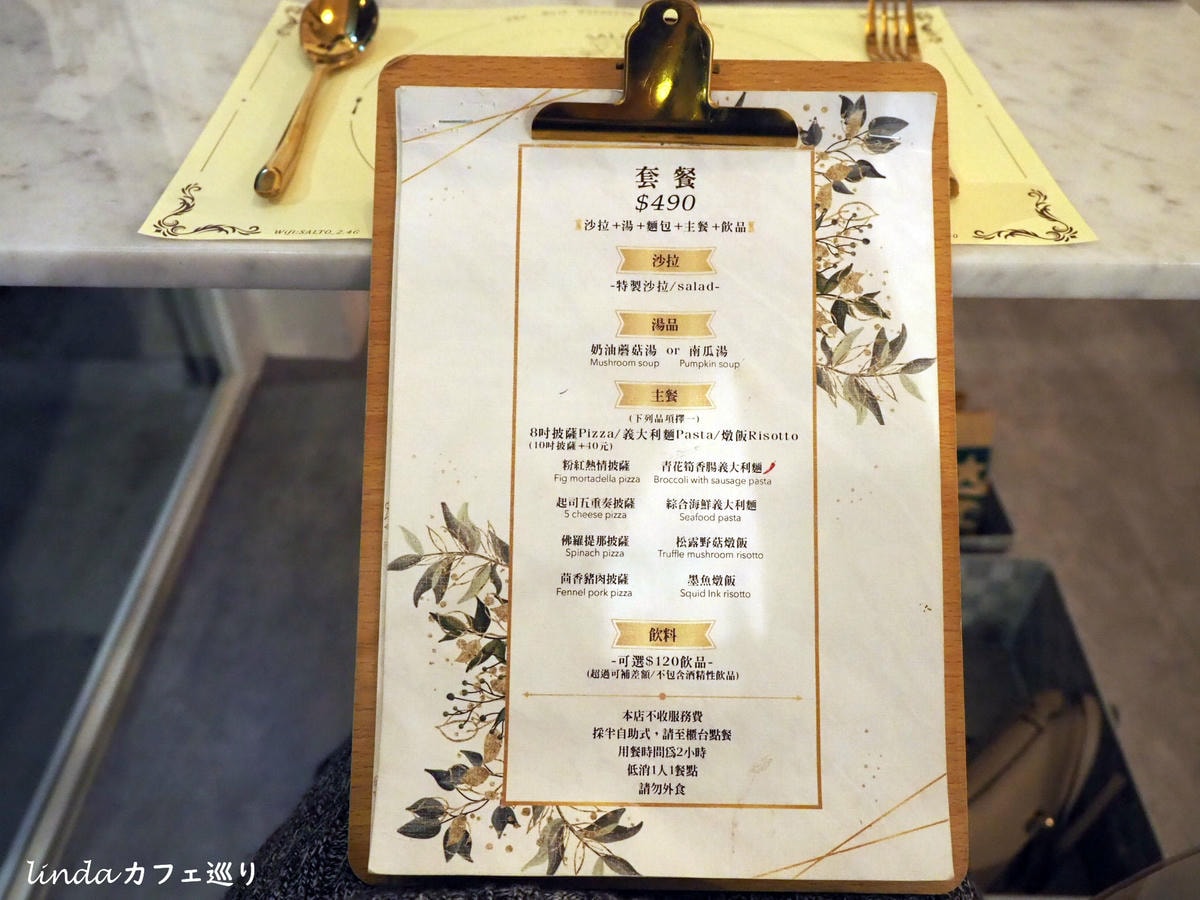 套餐
$490
沙拉+湯+麵包+主餐+飲品
沙拉
-特製沙拉/salad-
湯品
奶油蘑菇湯 or 南瓜湯
Mushroom soup Pumpkin soup
主餐
(下列品項擇一)
8吋披薩Pizza/義大利麵Pasta/燉飯Risotto
(10吋披薩+40元)
粉紅熱情披薩 青花筍香腸義大利麵
Fig mortadella pizza Broccoli with sausage pasta
起司五重奏披薩 綜合海鮮義大利麵
5 cheese pizza Seafood pasta
佛羅提那披薩 松露野菇燉飯
Spinach pizza Truffle mushroom risotto
茴香豬肉披薩 墨魚燉飯
Fennel pork pizza Squid Ink risotto
飲料
-可選$120飲品-
(超過可補差額/不包含酒精性飲品)
本店不收服務費
採半自助式，請至櫃台點餐
用餐時間為2小時
低消1人1餐點
請勿外食
Wifi:SALTO_2.4G
lindaカフェ巡り